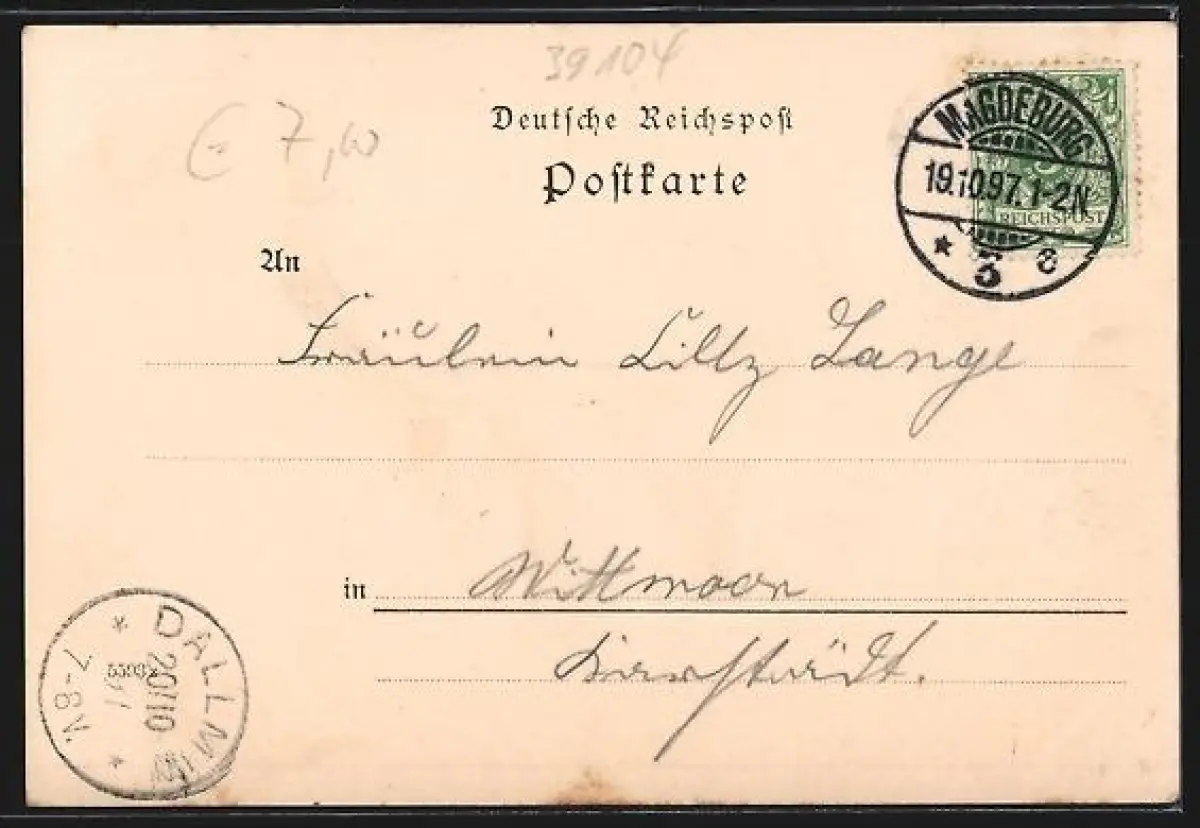 39104
€ 7,00
Deutsche Reichspost
Postkarte
MAGDEBURG
19.10.97. 1-2N
* 5 c
REICHSPOST
An
Fräulein Lilly Lange
in Wittmoor
Karstädt.
DALLMIN
20/10
97
7-8V.
* *